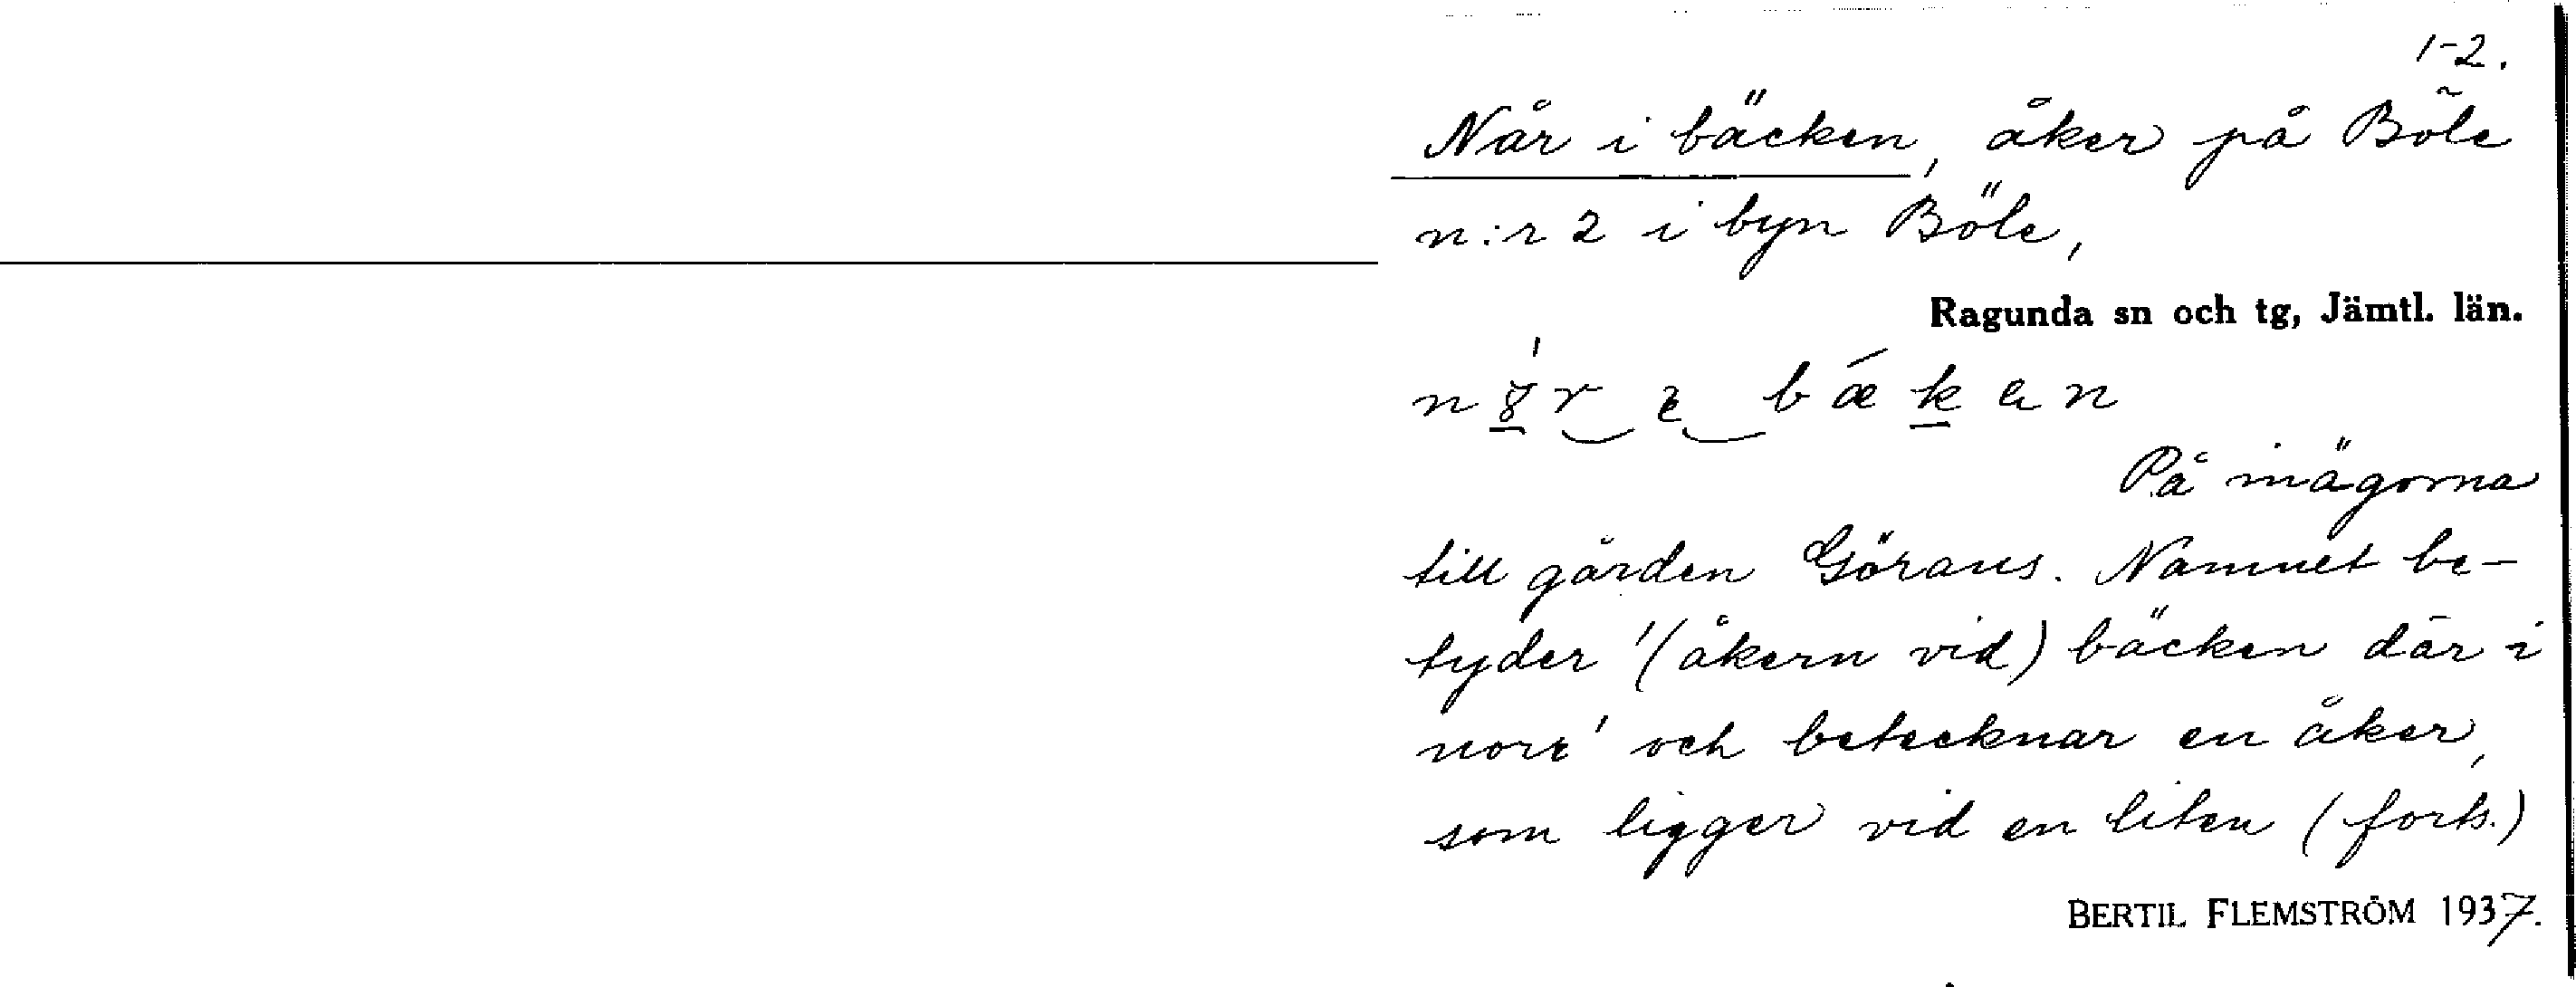 1-2.
Når i bäcken, åker på Böle
n:r 2 i byn Böle,
Ragunda sn och tg, Jämtl. län.
På inägorna
till gården Görans. Namnet be-
tyder '(åkern vid) bäcken där i
norr' och betecknar en åker,
som ligger vid en liten (forts.)
BERTIL FLEMSTRÖM 1937.